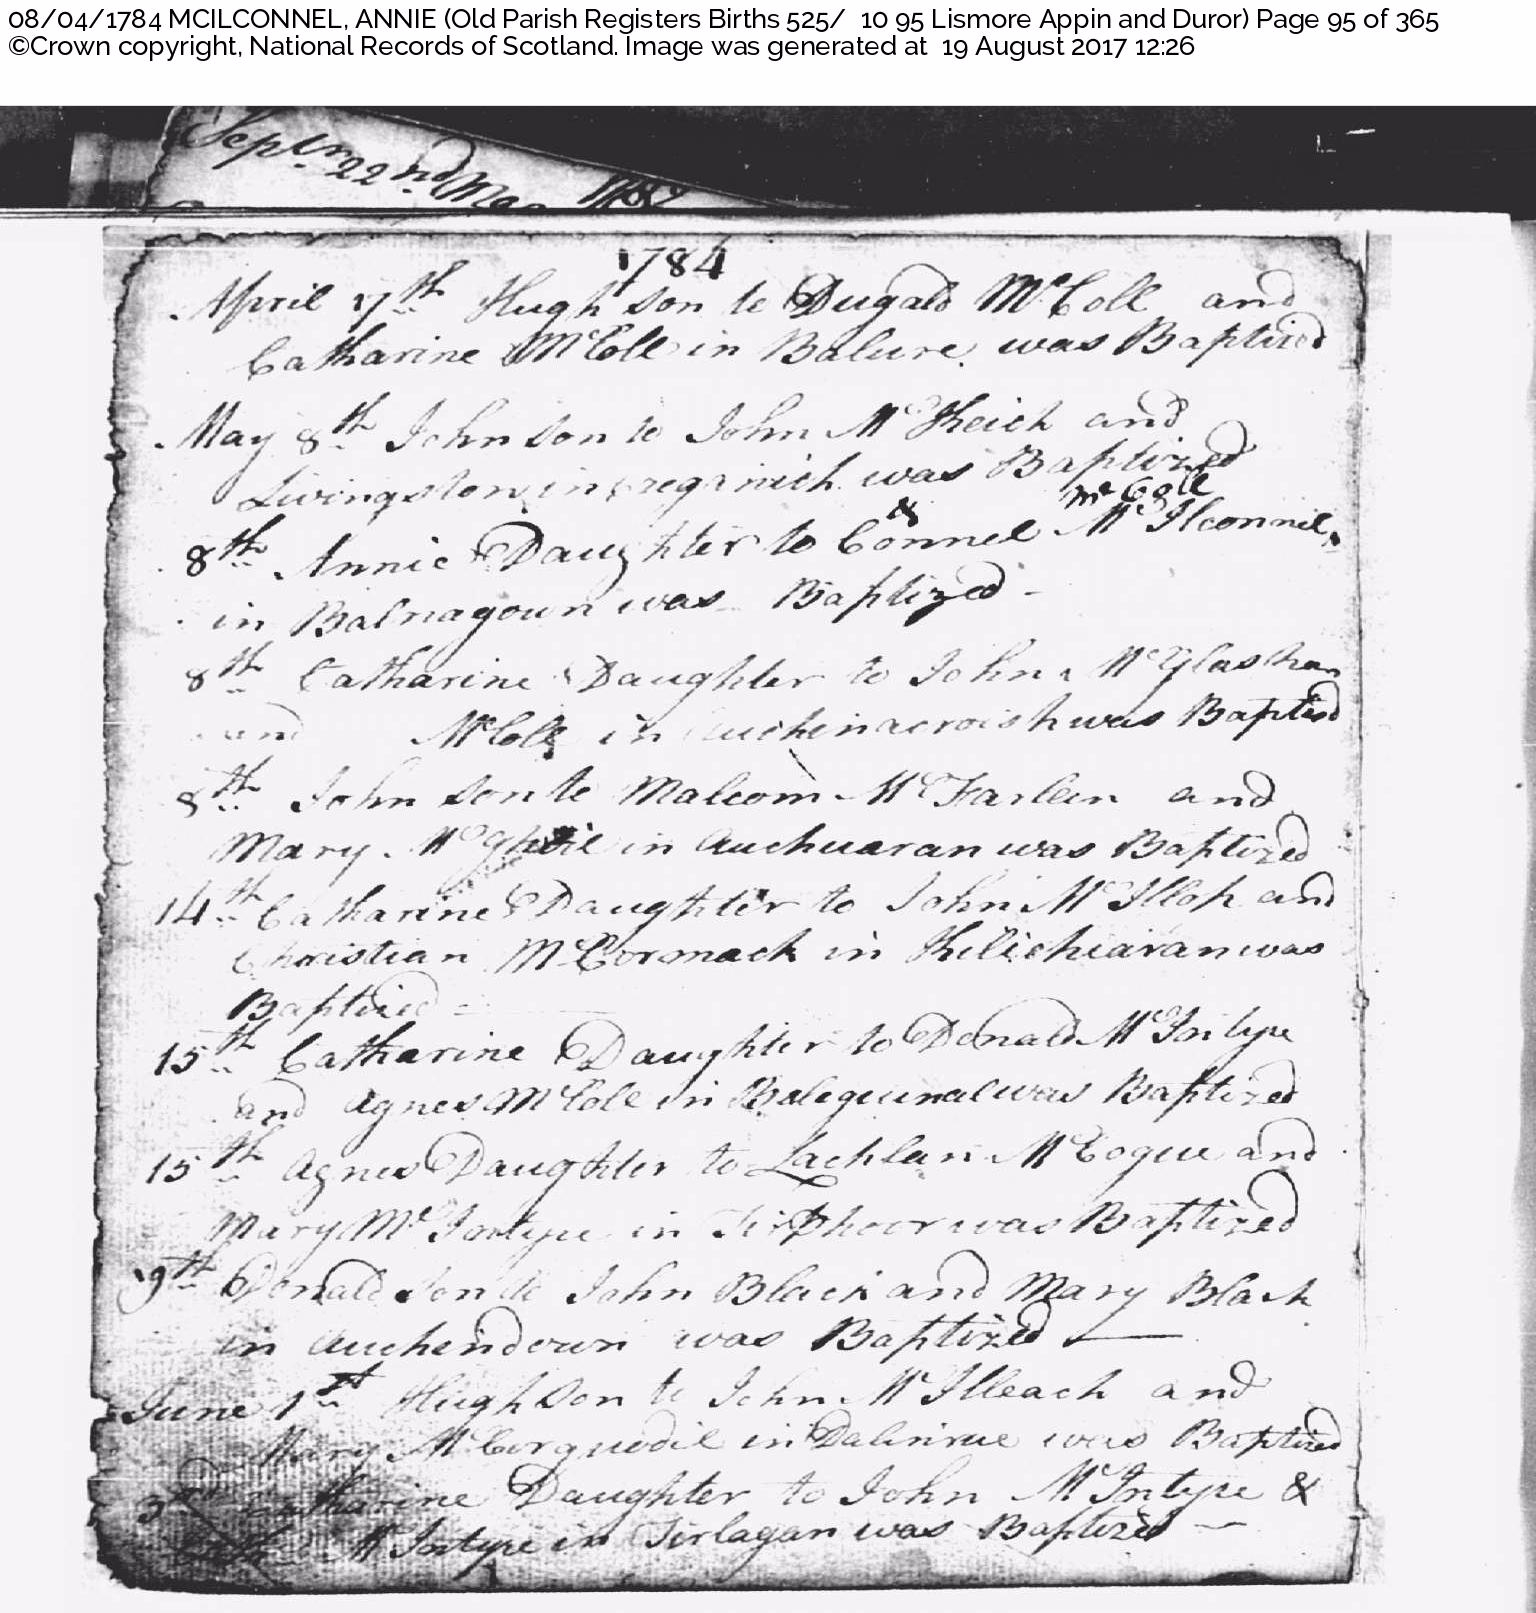 08/04/1784 MCILCONNEL, ANNIE (Old Parish Registers Births 525/ 10 95 Lismore Appin and Duror) Page 95 of 365
©Crown copyright, National Records of Scotland. Image was generated at 19 August 2017 12:26
Septr 22nd
1784
April 17th Hugh son to Dugald McColl and
Catharine McColl in Balure was Baptized
May 8th John son to John McKeich and
Livingston in was Baptized
McColl
8th Annie Daughter to Connel & McIlconnel
in Balnagown was Baptized
8th Catharine Daughter to John McGlashan
and McColl in Auchinacroish was Baptized
8th John son to Malcom McFarlen and
Mary in Auchuaran was Baptized
14th Catharine Daughter to John McIllop and
Christian McCormack in Kilichiaran was
Baptized
15th Catharine Daughter to Donald McIntyre
and Agnes McColl in was Baptized
15th Agnes Daughter to Lachlan and
Mary McIntyre in was Baptized
19th Donald son to John Black and Mary Black
in Auchindown was Baptized
June 1st Hugh son to John McIlleach and
Mary McCorquodil in was Baptized
3rd Catharine Daughter to John McIntyre &
McIntyre in Tirlagan was Baptized